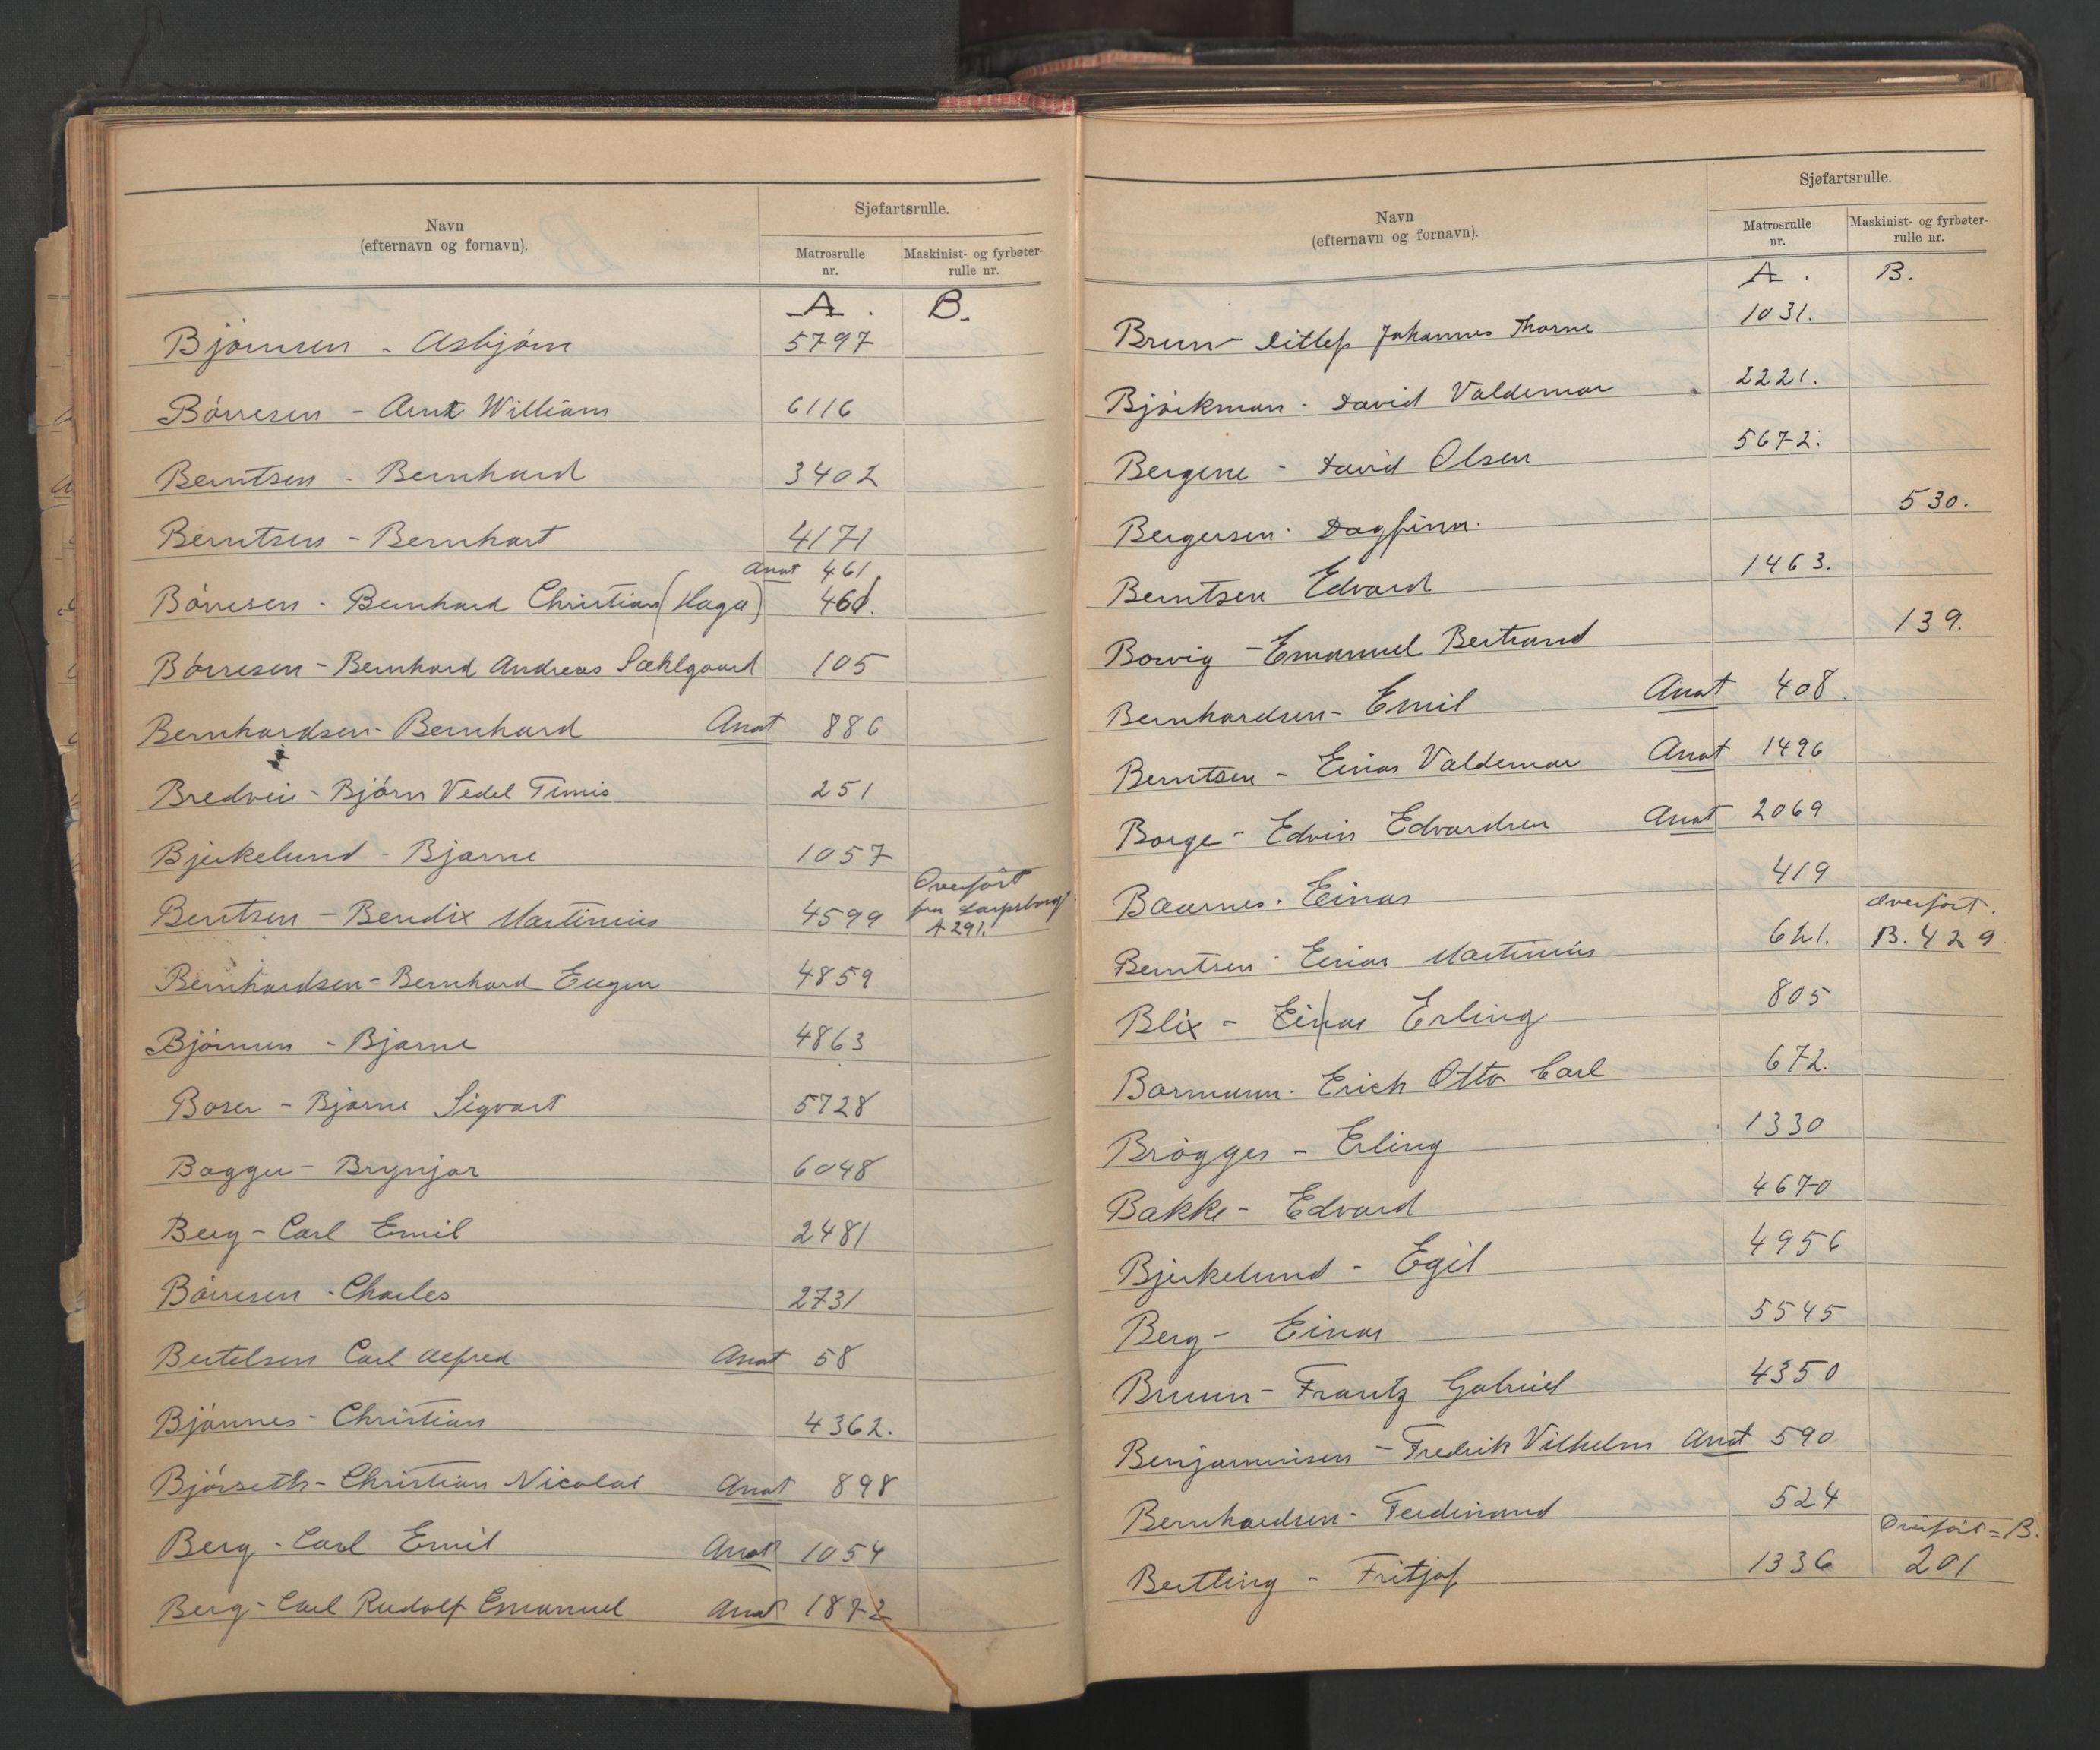 Navn
(efternavn og fornavn).
Sjøfartsrulle.
Matrosrulle nr.
Maskinist- og fyrbøter-rulle nr.
A. B.
Bjørnsen - Asbjørn 5797
Børresen - Arnt William 6116
Berntsen - Bernhard 3402
Berntsen - Bernhart 4171
Anat 461
Børresen - Bernhard Christian (Haga) 461.
Børresen - Bernhard Andreas Sæhlgaard 105
Bernhardsen - Bernhard Anat 886
Bredvei - Bjørn Vedel 251
Bjerkelund - Bjarne 1057
Overført
fra Sarpsborg
Berntsen - Bendix Martinius 4599 A 291.
Bernhardsen - Bernhard Eugen 4859
Bjørnsen - Bjarne 4863
Boser - Bjarne Sigvart 5728
Bagger - Brynjar 6048
Berg - Carl Emil 2481
Børresen - Charles 2731
Bertelsen Carl Alfred Anat 58
Bjønnes - Christian 4362.
Bjørseth - Christian Nicolai Anat 898
Berg - Carl Emil Anat 1054
Berg - Carl Rudolf Emanuel Anat 1872
Navn
(efternavn og fornavn).
Sjøfartsrulle.
Matrosrulle nr.
Maskinist- og fyrbøter-rulle nr.
A. B.
Brun - Ditlef Johannes Thorne 1031.
Bjørkman - David Valdemar 2221.
Bergene - David Olsen 5672.
Bergersen - Dagfinn. 530.
Berntsen Edvard 1463.
Borvig - Emanuel Bertrand 139.
Bernhardsen - Emil Anat 408
Berntsen - Einar Valdemar Anat 1496
Borge - Edvin Edvardsen Anat 2069
Baarnes - Einar 419
overført.
Berntsen - Einar Martinius 621. B. 429
Blix - Einar Erling 805
Bormann - Erich Otto Carl 672.
Brøgger - Erling 1330
Bakke - Edvard 4670
Bjerkelund - Egil 4956
Berg - Einar 5545
Bruun - Frantz Gabriel 4350
Benjaminsen - Fredrik Vilhelm Anat 590
Bernhardsen - Ferdinand 524
Overført = B.
Bertling - Fritjof 1336 201